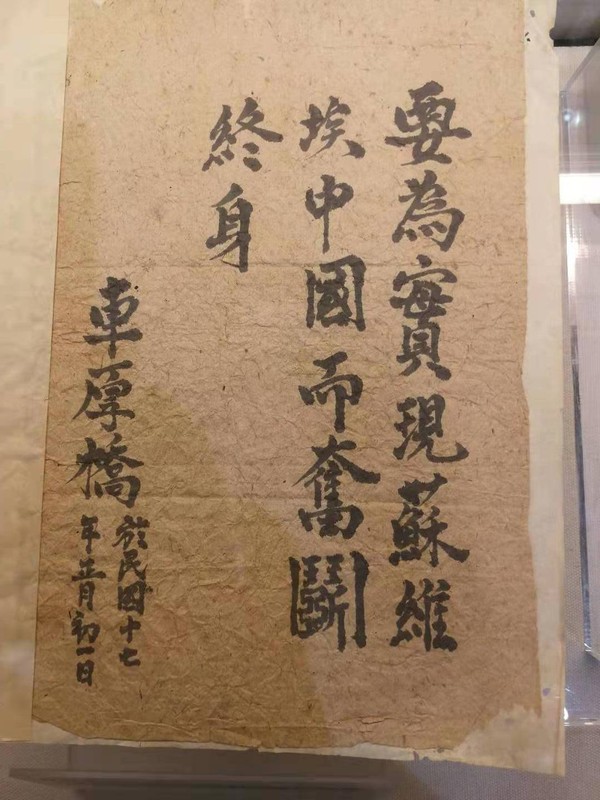 要為實現蘇維
埃中國而奮鬭
終身
車厚橋
於民國十七
年五月初一日